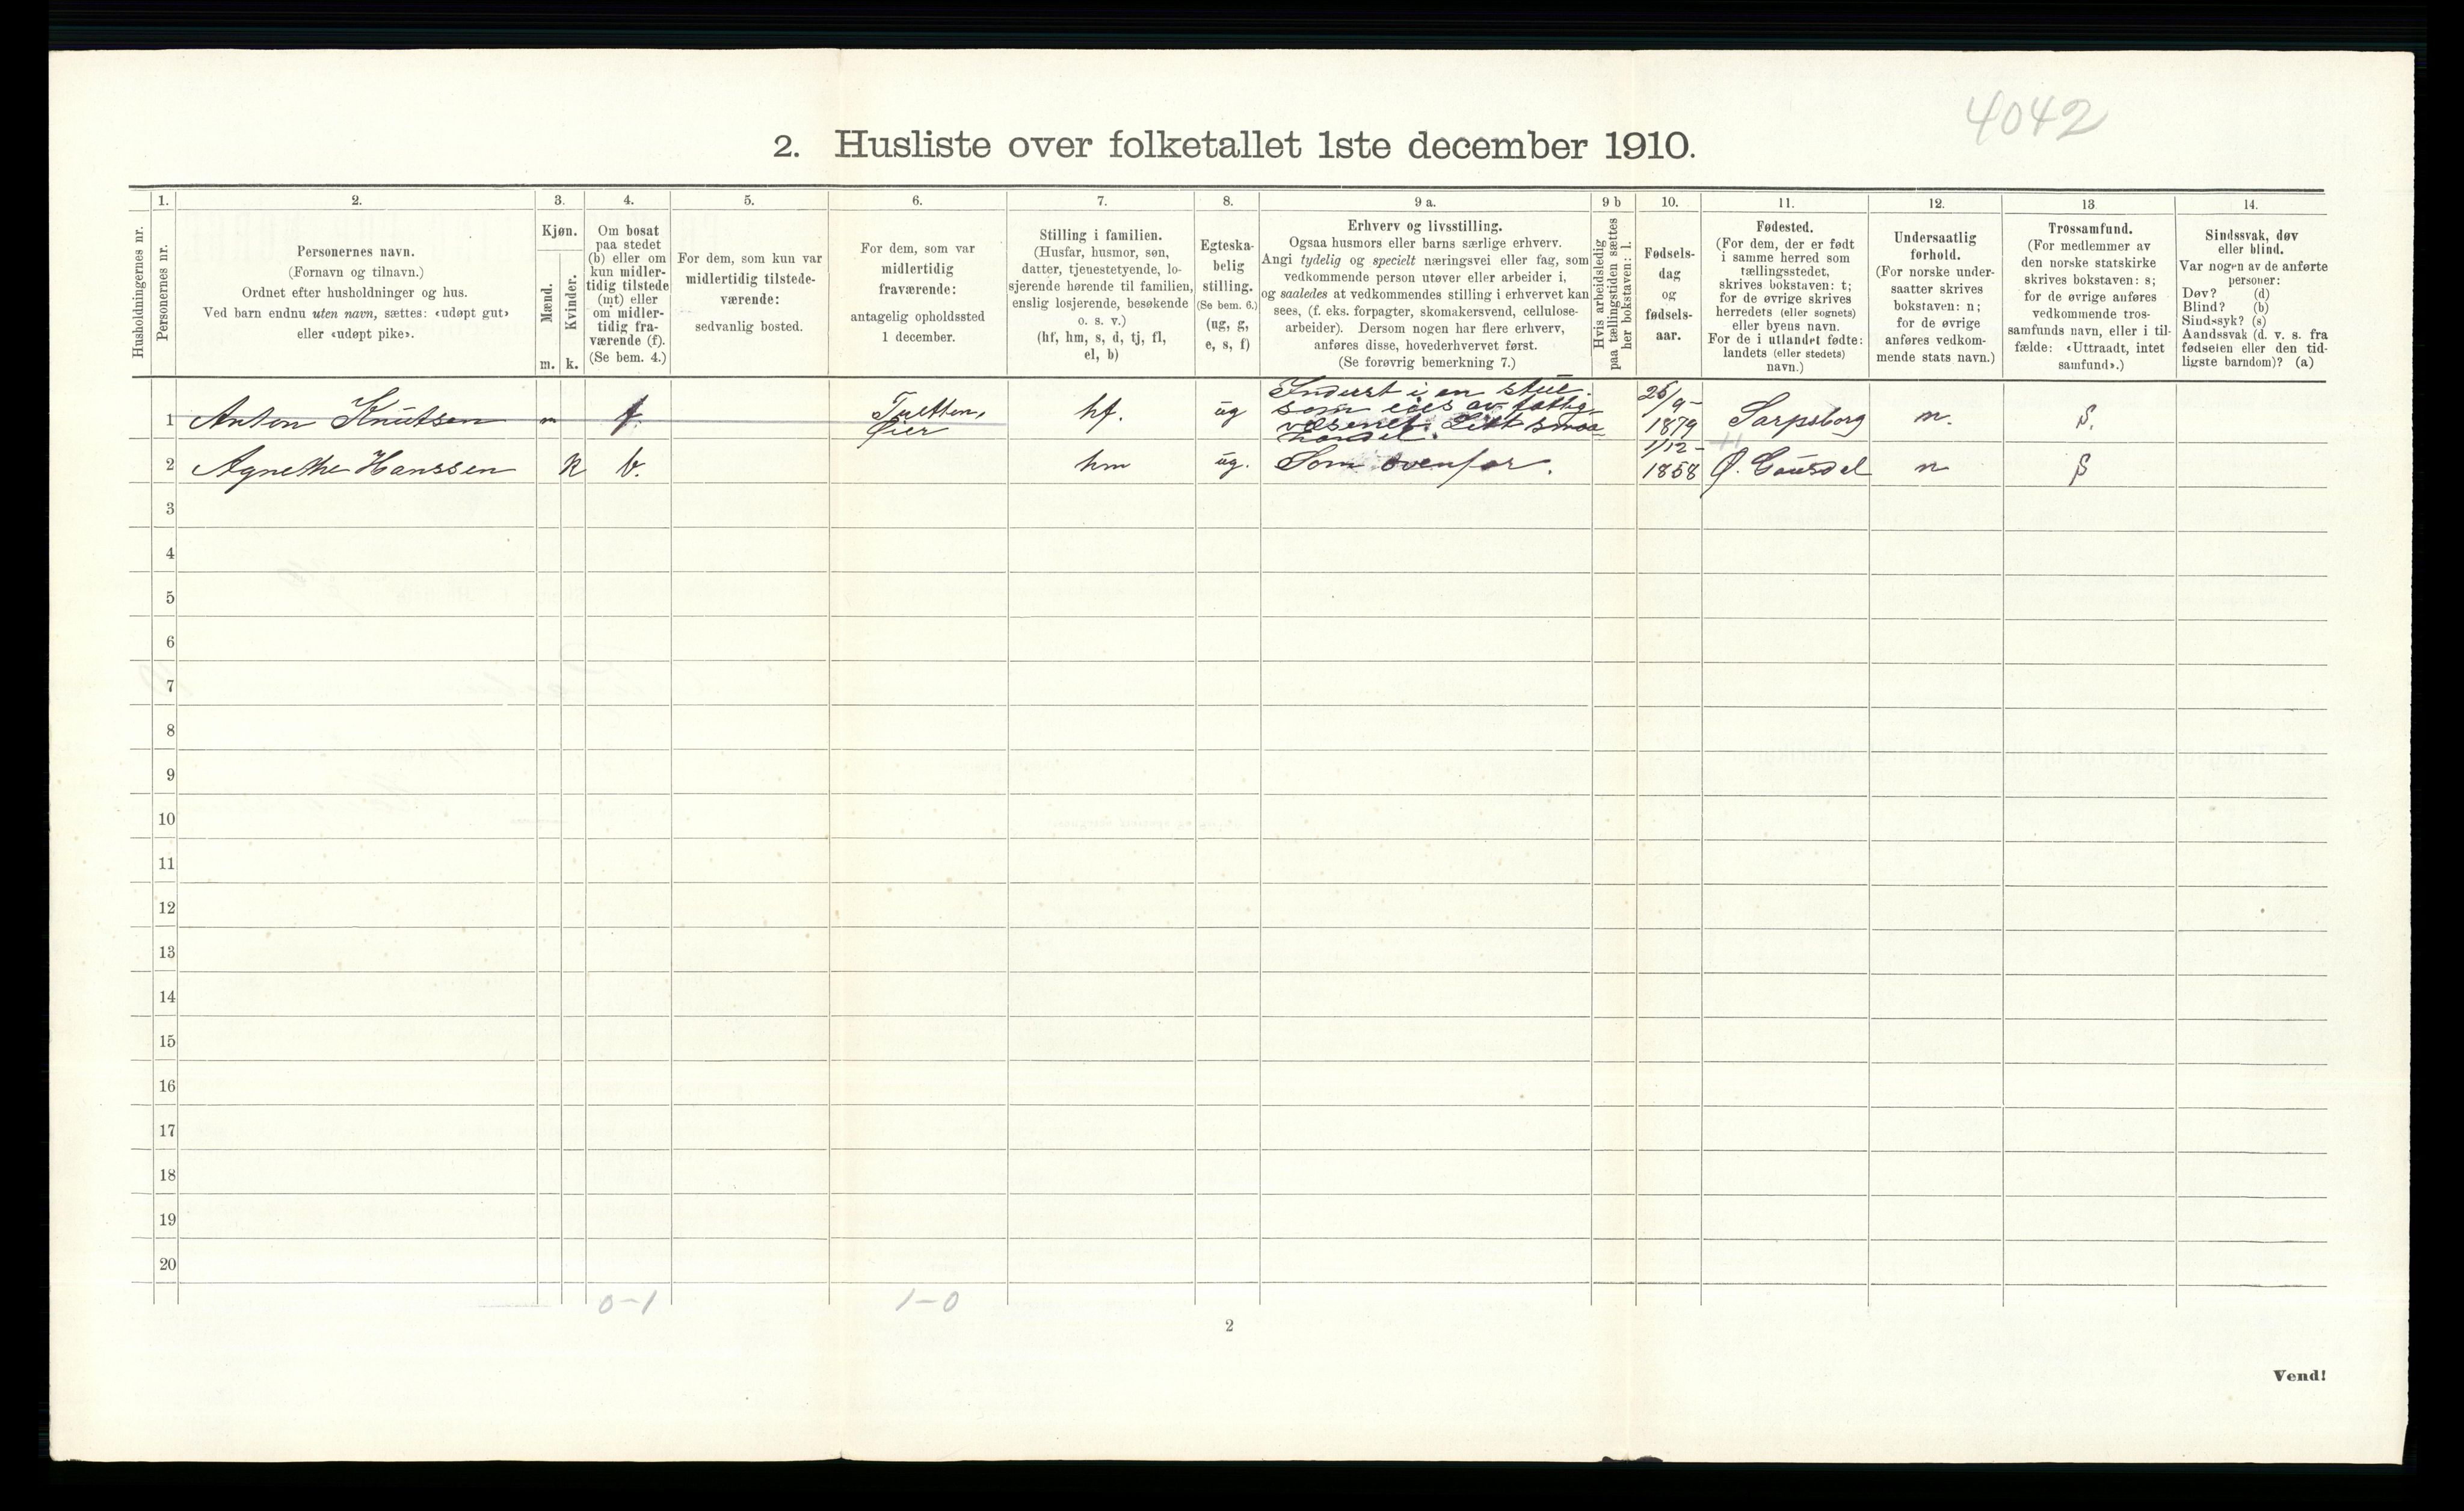 4042
2. Husliste over folketallet 1ste december 1910.
Husholdningernes nr.
1.
Personernes nr.
2.
Personernes navn.
(Fornavn og tilnavn.)
Ordnet efter husholdninger og hus.
Ved barn endnu uten navn, sættes: «udøpt gut»
eller «udøpt pike».
3.
Kjøn.
Mænd.
Kvinder.
m. k.
4.
Om bosat
paa stedet
(b) eller om
kun midler-
tidig tilstede
(mt) eller
om midler-
tidig fra-
værende (f).
(Se bem. 4.)
5.
For dem, som kun var
midlertidig tilstede-
værende:
sedvanlig bosted.
6.
For dem, som var
midlertidig
fraværende:
antagelig opholdssted
1 december.
7.
Stilling i familien.
(Husfar, husmor, søn,
datter, tjenestetyende, lo-
sjerende hørende til familien,
enslig losjerende, besøkende
o. s. v.)
(hf, hm, s, d, tj, fl,
el, b)
8.
Egteska-
belig
stilling.
(Se bem. 6.)
(ug, g,
e, s, f)
9 a.
Erhverv og livsstilling.
Ogsaa husmors eller barns særlige erhverv.
Angi tydelig og specielt næringsvei eller fag, som
vedkommende person utøver eller arbeider i,
og saaledes at vedkommendes stilling i erhvervet kan
sees, (f. eks. forpagter, skomakersvend, cellulose-
arbeider). Dersom nogen har flere erhverv,
anføres disse, hovederhvervet først.
(Se forøvrig bemerkning 7.)
9 b
Hvis arbeidsledig
paa tællingstiden sættes
her bokstaven: l.
10.
Fødsels-
dag
og
fødsels-
aar.
11.
Fødested.
(For dem, der er født
i samme herred som
tællingsstedet,
skrives bokstaven: t;
for de øvrige skrives
herredets (eller sognets)
eller byens navn.
For de i utlandet fødte:
landets (eller stedets)
navn.)
12.
Undersaatlig
forhold.
(For norske under-
saatter skrives
bokstaven: n;
for de øvrige
anføres vedkom-
mende stats navn.)
13
Trossamfund.
(For medlemmer av
den norske statskirke
skrives bokstaven: s;
for de øvrige anføres
vedkommende tros-
samfunds navn, eller i til-
fælde: «Uttraadt, intet
samfund».)
14.
Sindssvak, døv
eller blind.
Var nogen av de anførte
personer:
Døv? (d)
Blind? (b)
Sindssyk? (s)
Aandssvak (d. v. s. fra
fødselen eller den tid-
ligste barndom)? (a)
1 Anton Knutsen m f. Tretten, Øier hf. ug
Inderst i en stue
som eies av fattig-
væsenet. Litt smaa
handel.
25/9-
1879 Sarpsborg n. s.
2 Agnethe Hanssen k b. hm ug. Som ovenfor. 1/12-
1858 Ø. Gausdal n s
3
4
5
6
7
8
9
10
11
12
13
14
15
16
17
18
19
20
0-1 1-0
2
Vend!